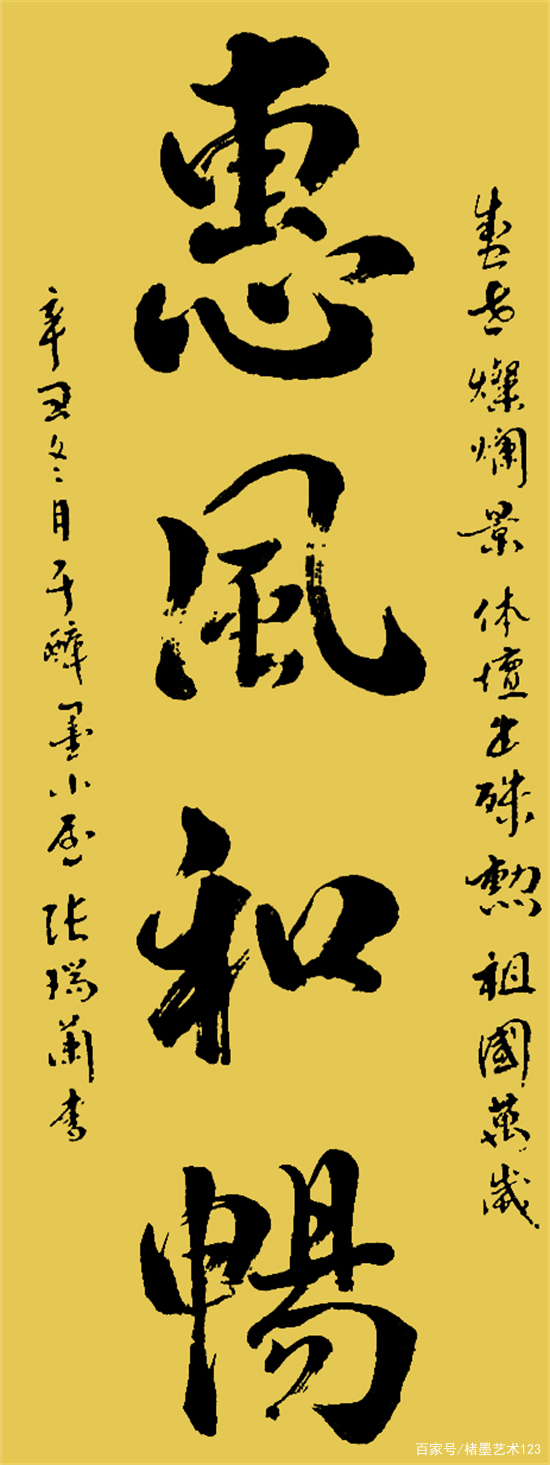 盛世燦爛景体壇出殊勲祖國萬歲
惠風和暢
辛丑冬月于醉墨小屋张瑞蘭書
百家号/楮墨艺术123